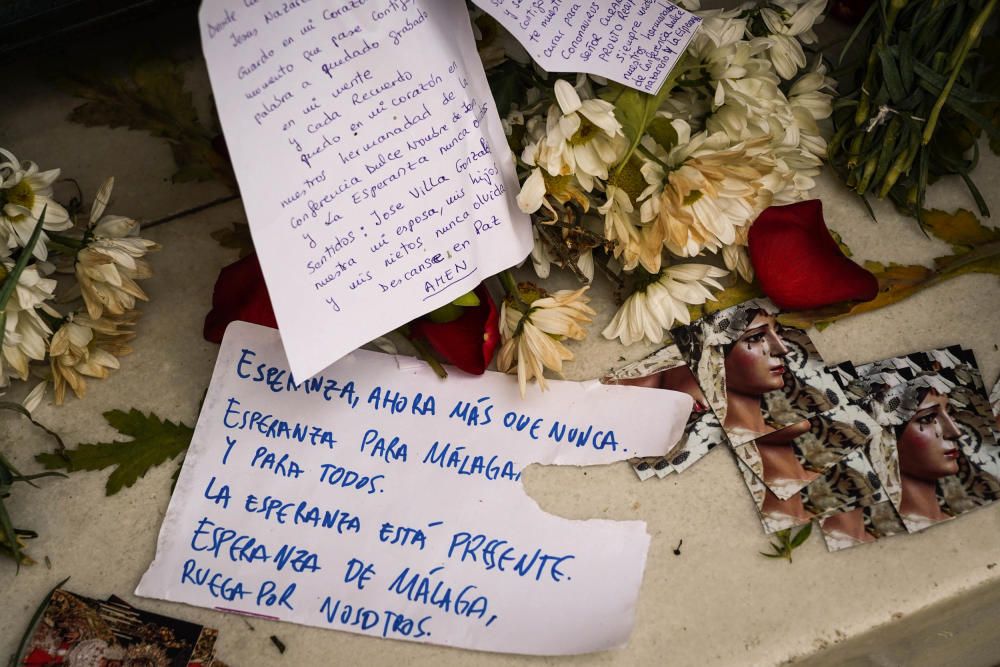 Jesus Nazareno
Guardo en mi Corazón
momento que pase contigo
palabra a quedado grabado
en mi mente
y cada Recuerdo
quedo en mi corazón en
nuestros hermanadad de la
Conferencia Dulce Nombre de Jesus
y La Esperanza nunca olvi
Santidos: Jose Villa Gonzalez
nuestra mi esposa, mis hijos
y mis nietos nunca olvida
Descanse en Paz
AMEN
curar para
coronavirus
SEÑOR CURAR
PRONTO REAL
siempre unidos
tus hermandad
de Conferencia Dulce
nazareno y la Esperanza
ESPERANZA, AHORA MÁS QUE NUNCA.
ESPERANZA PARA MÁLAGA,
Y PARA TODOS.
LA ESPERANZA ESTÁ PRESENTE.
ESPERANZA DE MÁLAGA,
RUEGA POR NOSOTROS.